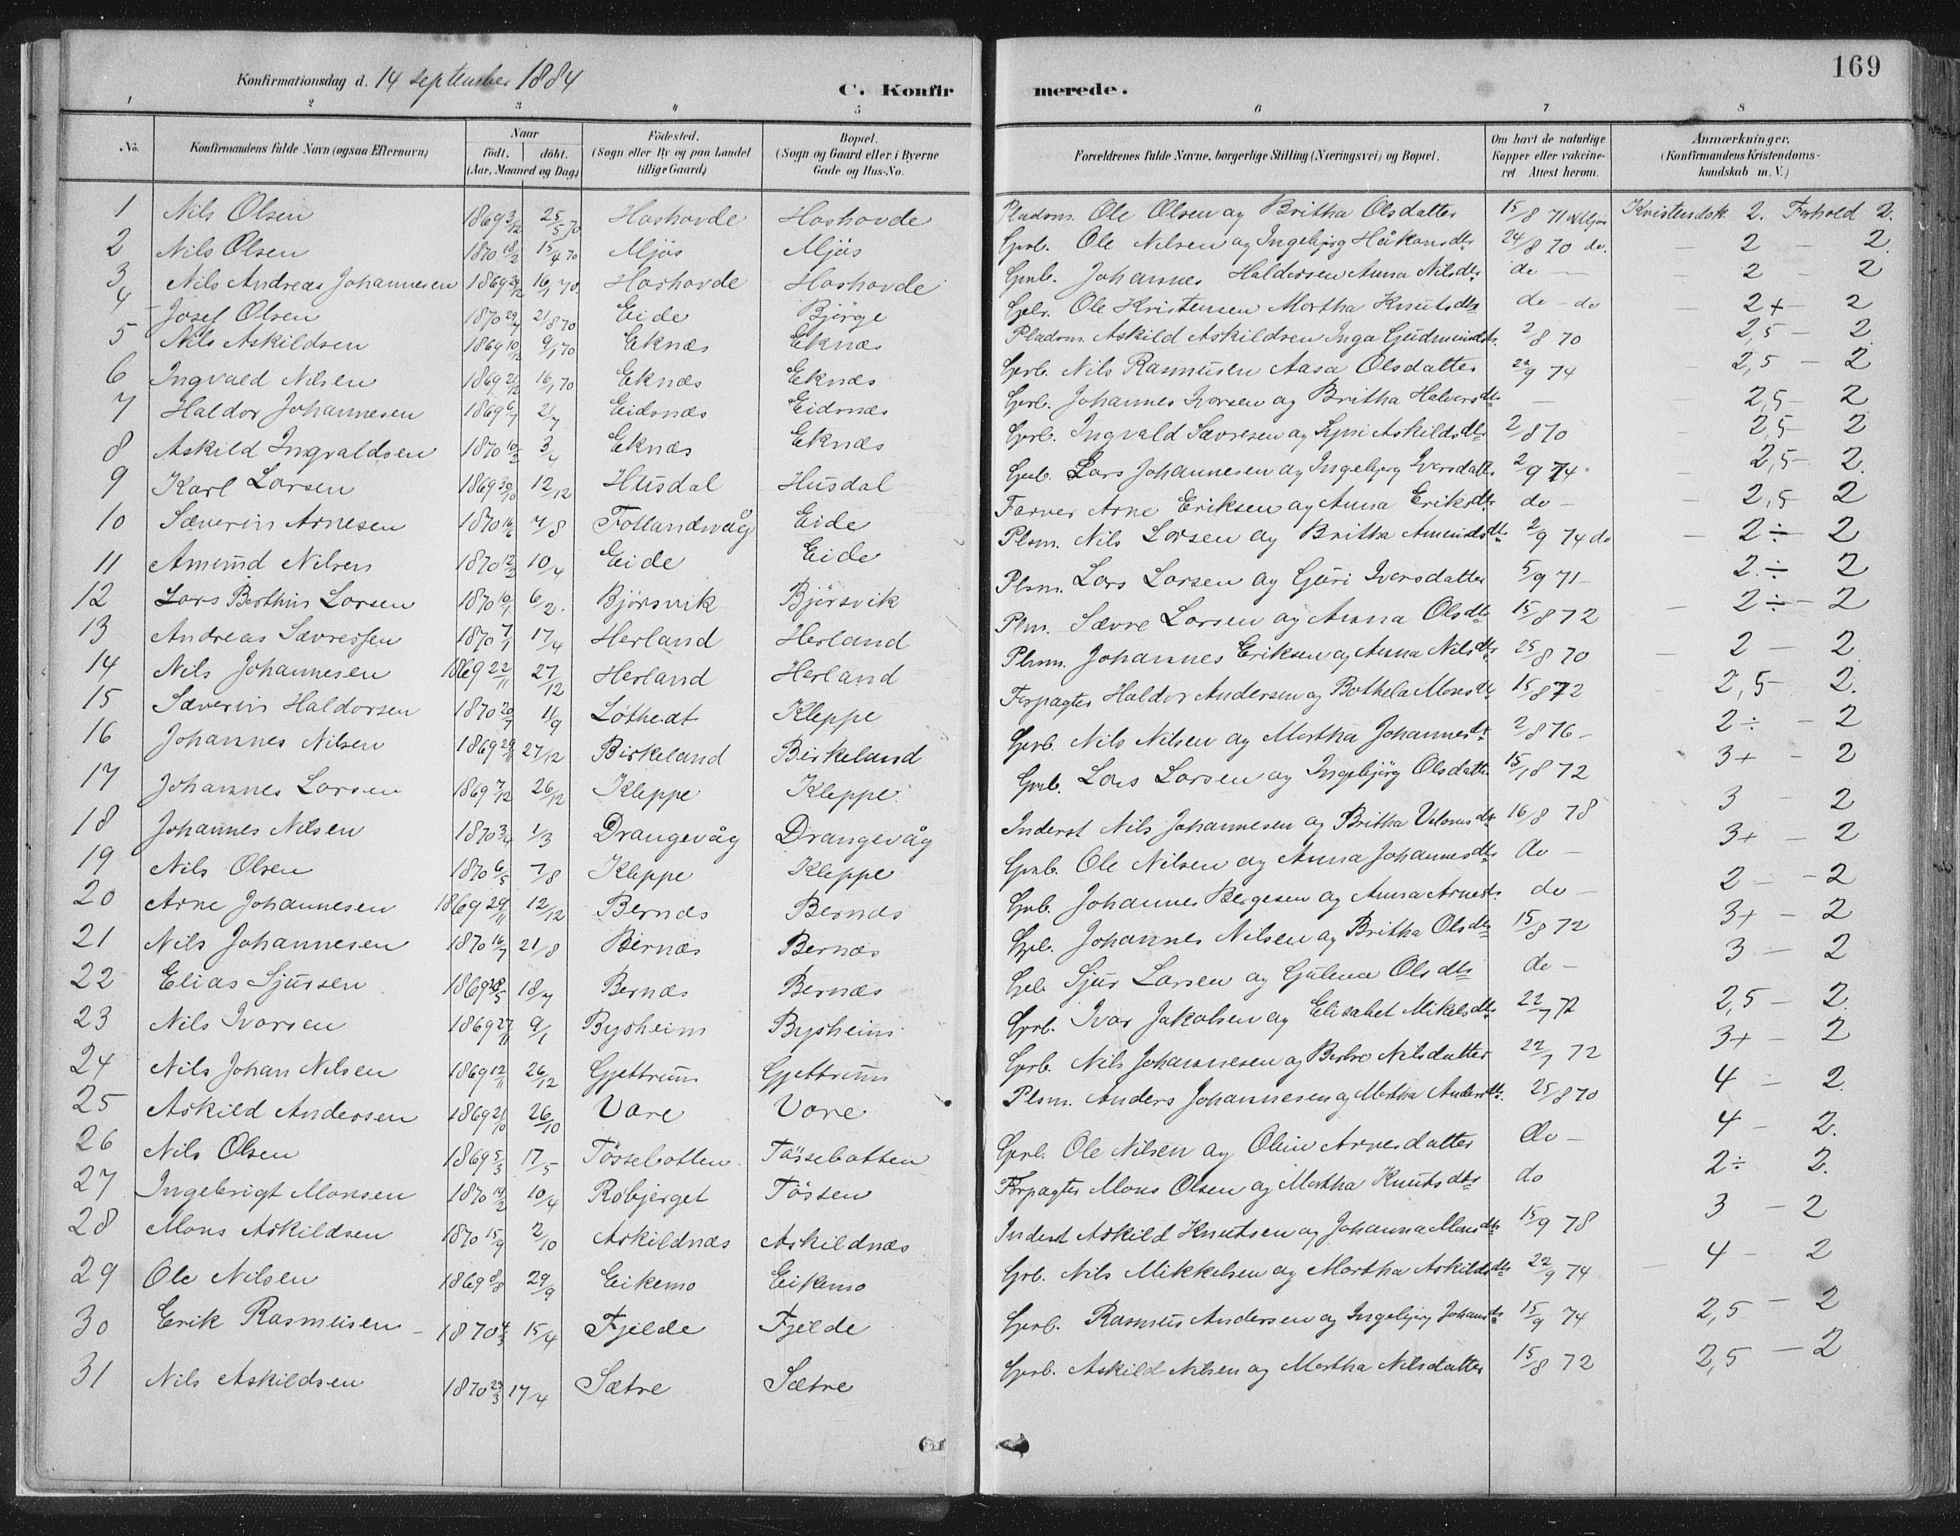 169
Konfirmationsdag d. 14 september 1884
C. Konfirmerede.
1 2 3 4 5 6 7 8
No. Konfirmandens fulde Navn (ogsaa Efternavn) Naar födt. döbt. (Aar, Maaned og Dag) Födested. (Sogn eller By og paa Landet tillige Gaard) Bopæl. (Sogn og Gaard eller i Byerne Gade og Hus-No. Forældrenes fulde Navne, borgerlige Stilling (Næringsvei) og Bopæl. Om havt de naturlige Kopper eller vakcineret Attest herom. Anmærkninger. (Konfirmandens Kristendomskundskab m. V.)
1 Nils Olsen 1869 3/12 25/5 70 Hoshovde Hoshovde Pladsm. Ole Olsen og Britha Olsdatter 15/8 71 Kristendsk. 2. Forhold 2.
2 Nils Olsen 1870 18/2 15/4 70 Mjös Mjös Grb. Ole Nilsen og Ingebjørg Håkonsdtr 24/8 70 do. – 2 – 2.
3 Nils Andreas Johannesen 1869 16/1 70. Hoshovde Hoshovde Grb. Johannes Haldorsen Anna Nilsdtr do — 2 2
4 Josef Olsen 1870 29/7 21/8 70 Eide Björge Ole Kristensen Martha Knutsdtr do – do 2+ 2
5 Nils Askildsen 1869 10/12 9/1 70 Eknæs Eknæs Pladsm. Askild Askildsen Inga Gudmundsdtr. 2/8 70 2,5 – 2
6 Ingvald Nilsen 1869 21/12 16/1 70 Eknæs Eknæs Grb. Nils Rasmusen Aasa Olsdatter 22/9 74 2,5 – 2
7 Haldor Johannesen 1869 6/7 2/7 Eidsnæs Eidsnæs Grb. Johannes Iversen og Britha Halversdtr — 2,5 – 2
8 Askild Ingvaldsen 1870 10/2 3/4 Eknæs Eknæs Grb. Ingvald Sævresen og Askildsdtr 2/8 70 2,5 2
9 Karl Larsen 1869 30/10 12/12 Husdal Husdal Grb. Lars Johannesen og Ingebjørg Iversdatter 2/9 74 2,5 – 2.
10 Sæverin Arnesen 1870 16/6 7/8 Fotlandsvåg Eide Farver Arne Eriksen og Anna Eriksdtr do – 2,5 – 2
11 Amund Nilsen 1870 12/3 10/4 Eide Eide Plsm. Nils Larsen og Britha Amundsdtr 2/9 74 do 2÷ 2
12 Lars Berthus Larsen 1870 10/1 6/2. Björsvik Björsvik Plsm. Lars Larsen og Guri Iversdatter 5/9 71 – 2÷ 2
13 Andreas Sævresen 1870 7/1 17/4 Herland Herland Plm. Sævre Larsen og Anna Olsdtr 15/8 72 – 2÷ – 2
14 Nils Johannesen 1869 22/11 27/12 Herland Herland Plsm. Johannes Eriksen og Anna Nilsdtr 25/8 70 – 2 – 2
15 Sæverin Haldorsen 1870 20/7 11/9 Löthedt Kleppe Forpagter Haldor Andersen og Bothela Monsdtr 15/8 72 2,5 – 2.
16 Johannes Nilsen 1869 29/11 27/12 Birkeland Birkeland Grb. Nils Nilsen og Martha Johannesdtr 2/8 76 – 2÷ – 2
17 Johannes Larsen 1869 7/12 26/12 Kleppe Kleppe. Grb. Lars Larsen og Ingebjörg Olsdatter 15/8 72 3+ – 2
18 Johannes Nilsen 1870 3/4 1/3 Drangevåg Drangevåg Inderst Nils Johannesen og Britha dtr 16/8 78 3 – 2
19 Nils Olsen 1870 6/5 7/8 Kleppe Kleppe Grb. Ole Nilsen og Anna Johannesdtr do – 3+ – 2
20 Arne Johannesen 1869 29/11 12/12 Bernæs Bernæs Grb. Johannes Bergesen og Anna Arnesdtr. do – 2 – – 2
21 Nils Johannesen 1870 16/7 21/8 Bernæs Bernæs Johannes Nilsen og Britha Olsdtr 15/8 72 3+ – 2
22 Elias Sjursen 1869 28/5 18/7 Bernæs Bernæs Sjur Larsen og Gulena Olsdtr do – 3 – 2
23 Nils Ivarsen 1869 27/11 9/1 Bysheim Bysheim Grb. Ivar Jakobsen og Elisabet Mikelsdtr 22/7 72 2,5 – 2.
24 Nils Johan Nilsen 1869 12/11 26/12 Gjettrum Gjettrum Grb. Nils Johannesen og Berbro Nilsdatter 22/7 72 3+ – 2
25 Askild Andersen 1869 21/10 26/10 Vare Vare Plsm. Anders Johannesen og Martha Andersdtr. 25/8 70 4 – 2.
26 Nils Olsen 1869 5/3 17/5 Tössebotten. Tössebotten Grb. Ole Nilsen og Olin Arnesdatter do – 4 – 2.
27 Ingebrigt Monsen 1870 14/2 10/4 Robjerget Tössen Forpagter Mons Olsen og Martha Knutsdtr do 2÷ 2.
28 Mons Askildsen 1870 15/9 2/10 Askildnæs Askildnæs Inderst Askild Knutsen og Johanna Monsdtr 15/9 78 3 – 2
29 Ole Nilsen 1869 8/8 29/9 Eikemo Eikemo Grb. Nils Mikkelsen og Martha Askildsdtr 22/9 74 4 – 2
30 Erik Rasmusen – 1870 4/3 15/4 Fjelde Fjelde Grb. Rasmus Andersen og Ingebjørg Johansdtr 15/9 74 2,5 – 2
31 Nils Askildsen 1870 23/3 17/4 Sætre Sætre Grb. Askild Nilsen og Martha Nilsdatter 15/8 72 2,5 – 2